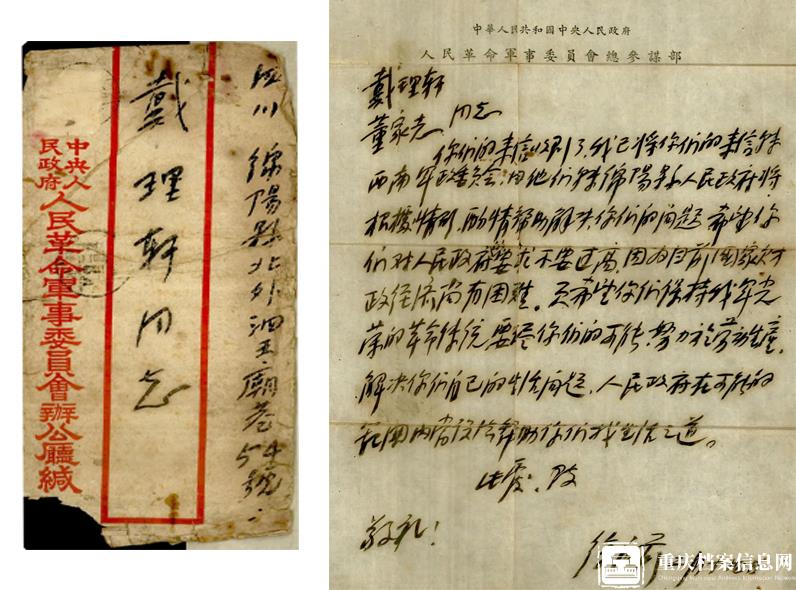 四川 綿陽縣北外泗王廟巷54號
戴理軒同志
中央人民政府人民革命軍事委員會辦公廳緘
中華人民共和國中央人民政府
人民革命軍事委員會總參謀部
戴理軒
董家志 同志
你们的来信收到了,我已将你们的来信转
西南军政委员会,由他们转绵陽县人民政府将
根據情形,酌情帮助解决你们的问题,希望你
们对人民政府要求不要过高,因为目前国家财
政经济尚有困难。只希望你们保持我军光
荣的革命传统,要尽你们的可能,努力於劳动生產,
解决你们自己的生活问题。人民政府在可能的
范围内当设法帮助你们找生活之道。
此覆。致
敬礼!
徐向前
重庆档案信息网